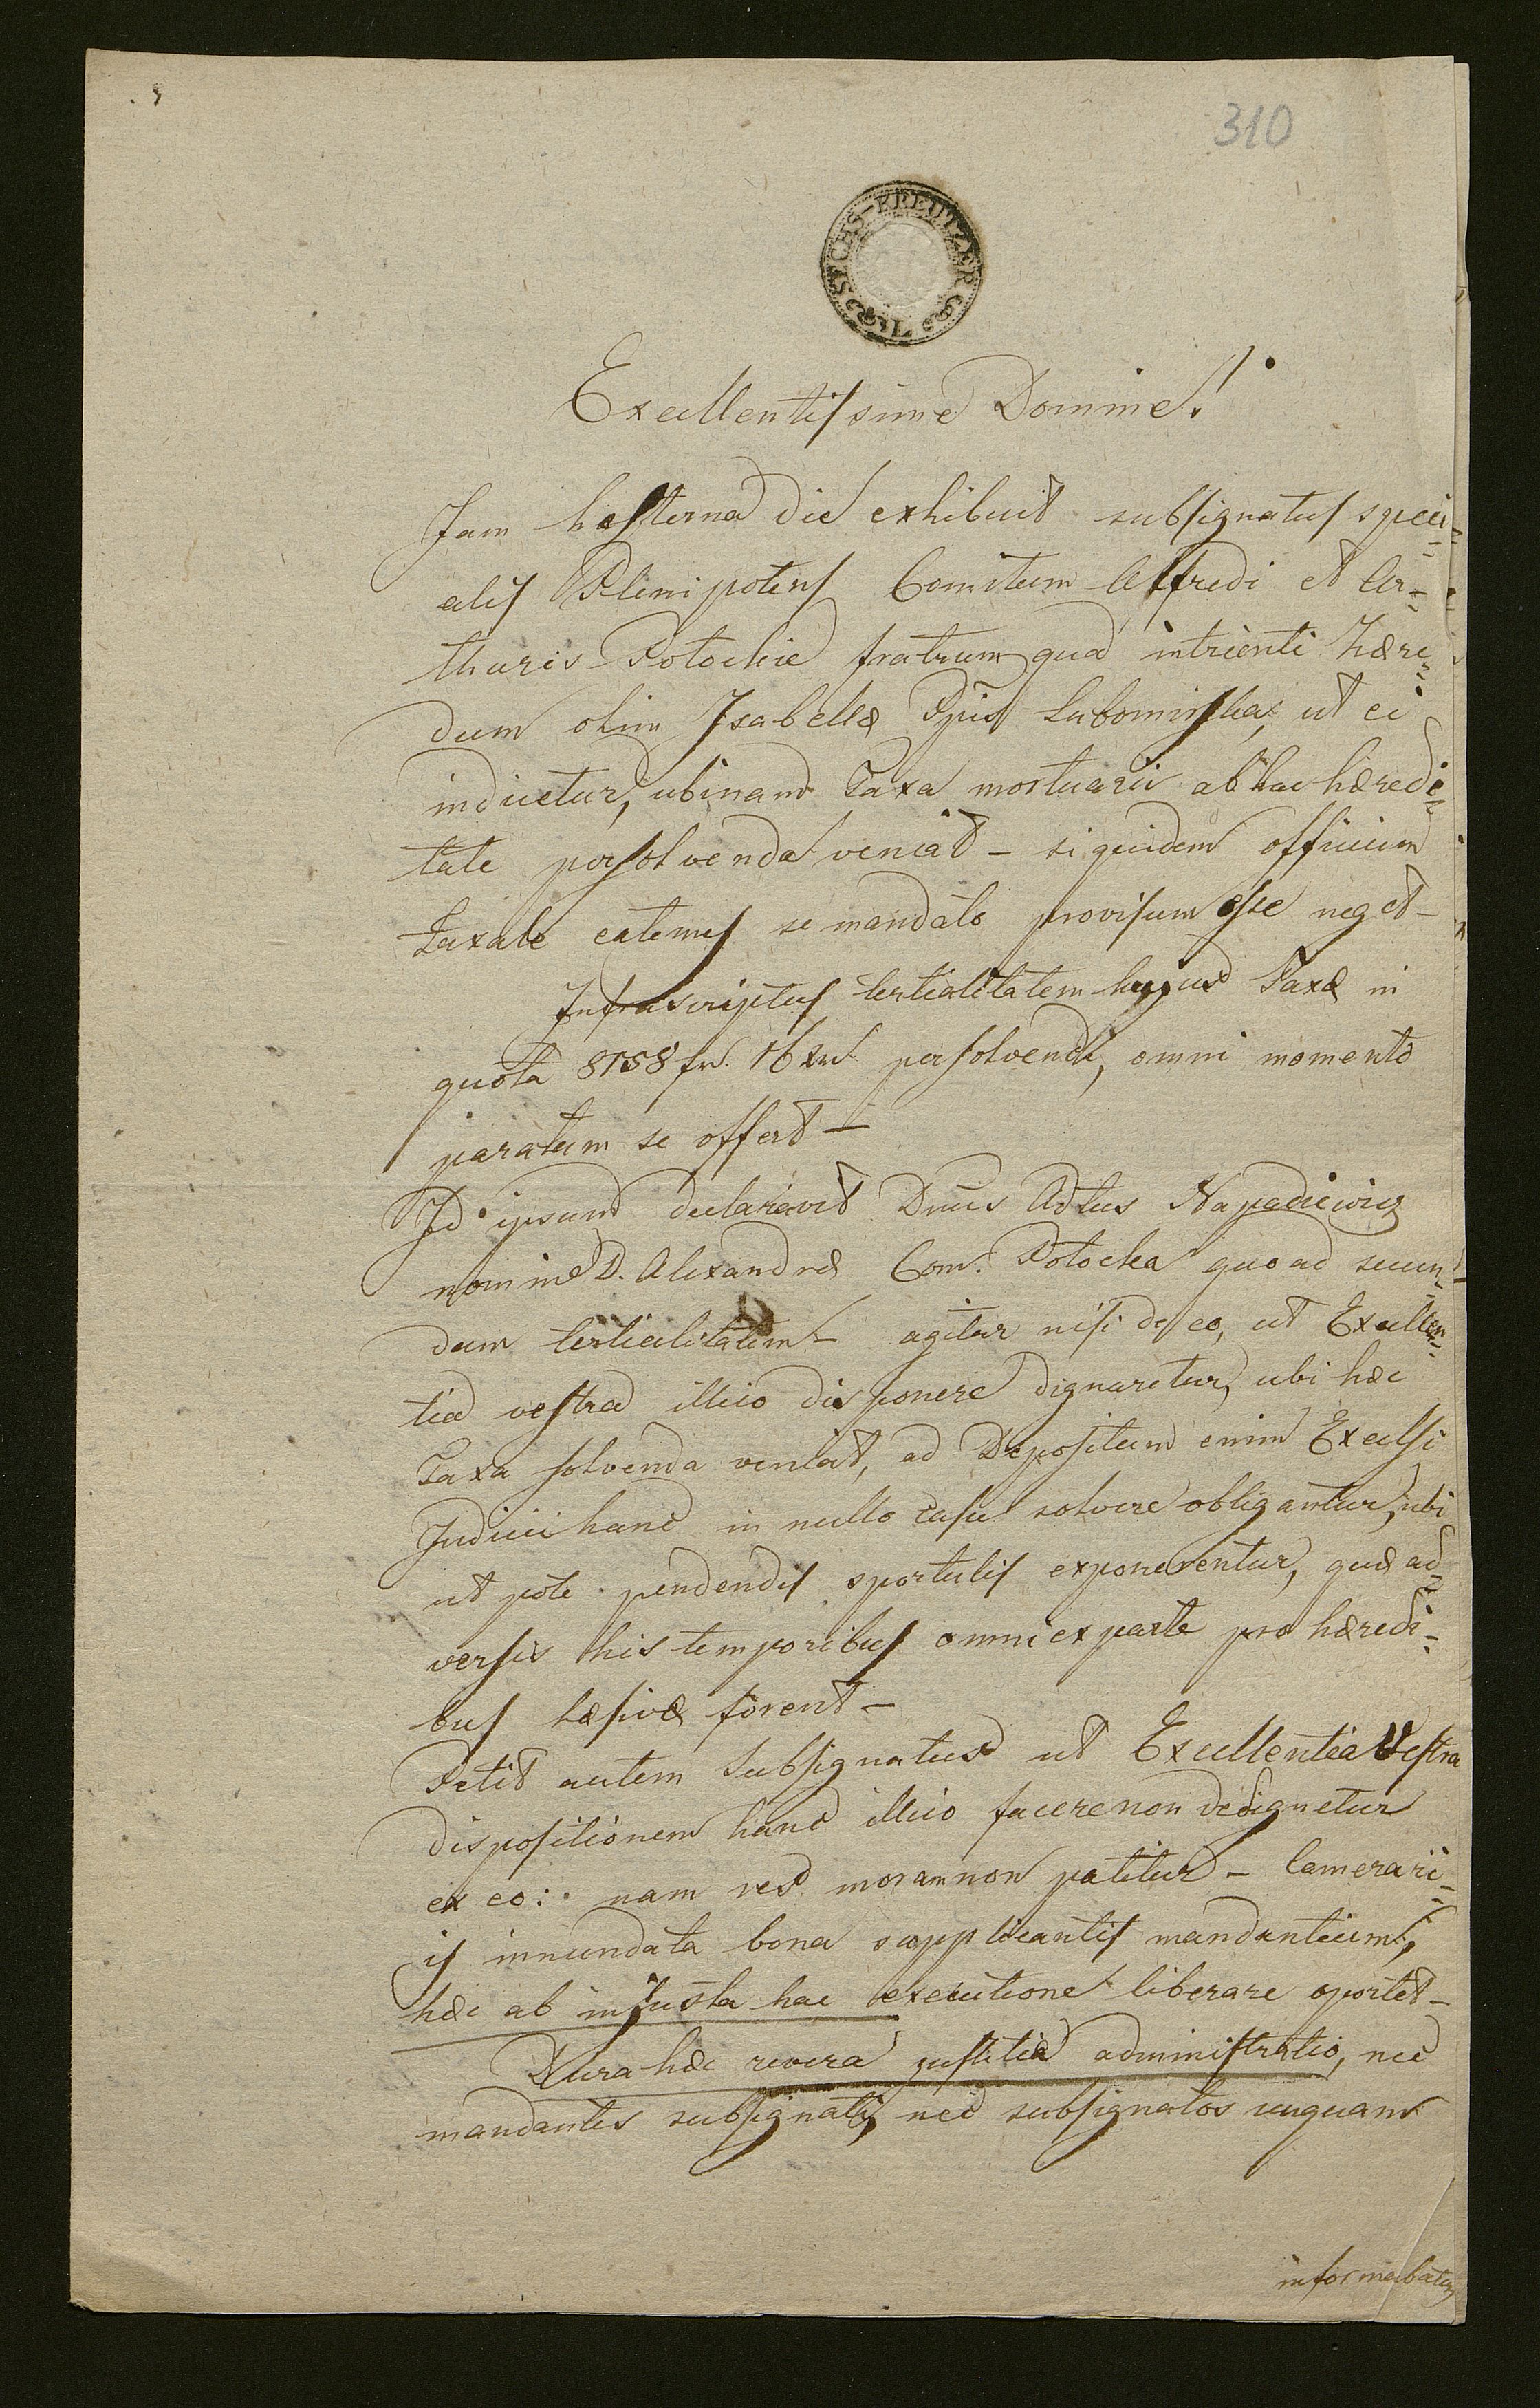 310
SECHS-KREUTZER
Excellentissime Domine!
Jam hesterna die exhibuit subsignatus speci-
alis Plenipotens Comitum Alfredi et Ar-
thuris Potockie fratrum qua in trienti Hære-
dum olim Isabellæ Ppis Lubomirska, ut ei
indicetur, ubinam Taxa mortuarii ab hac hæredi-
tate persolvenda veniat – siquidem officium
Taxale eatenus se mandato provisum esse neget –
Infrascriptus tertialitatem hujus Taxæ in
quota 8158 fr. 16 xr persolvendi, omni momento
paratum se offert –
Id ipsum declaravit Dnus Adtus Napadiewicz
nomine D. Alexandræ Com. Potocka quoad secun-
dam tertialitatem – agitur nisi de eo, ut Excellen-
tia vestra illico disponere dignaretur, ubi hæc
Taxa solvenda veniat, ad Depositum enim Excelsi
Judicii hanc in nullo casu solvere obligantur, ubi
utpote pendendis sportulis exponerentur, quæ ad-
versis his temporibus omni ex parte pro hæredi-
bus læsivæ forent –
Petit autem Subsignatus ut Excellentia Vestra
dispositionem hanc illico facere non dedignetur
ex eo: nam res moram non patitur – Camerari-
is innundata bona supplicantis mandantium,
hæc ab injusta hac executione liberare oportet –
Dura hæc revera justitiæ administratio, nec
mandantes subsignati, nec subsignatos unquam
informabatur